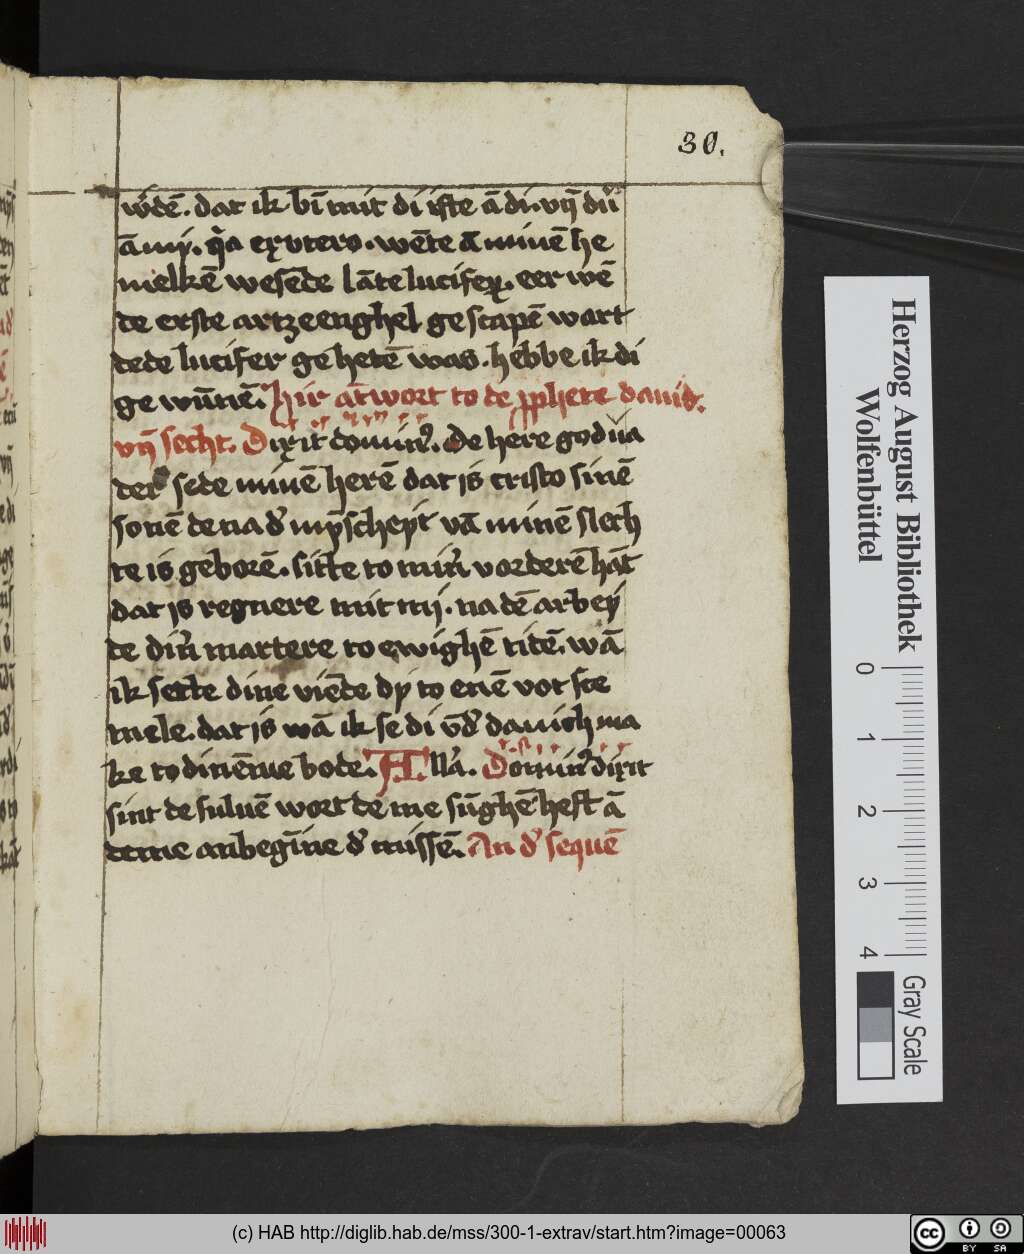 30.
w'dē. dat ik bī mit di iſte ā di. vn̄ du
ā mij. q̄a ex vtero. wēte ā minē he
melkē weſēde lāte lucifer. eer wē
de erſte artzeenghel geſcapē wart
dede lucifer ge hetē was. hebbe ik di
ge wūnē. hir ātwort to de ꝓphete dauid.
vn̄ ſecht. Dixit domin9. De here god va
der ſede minē herē dat is criſto ſinē
ſonē de na d' mȳſcheyt vā minē ſlech
te is geborē. ſitte to min' vorderē hāt
dat is regnere mit mij. na dē arbey
de din' martere to ewighē tidē. wā
ik ſette dine viēde dy to enē vot ſce
mele. dat is wā ik ſe di v̄d' danich ma
ke to dinēme bode. All'a. Domin9 dixit
ſint de ſuluē wort de me ſūghē heft ā
deme anbegīne d' miſſē. An d' ſequē
Herzog August Bibliothek
Wolfenbüttel
0 1 2 3 4
Gray Scale
(c) HAB http://diglib.hab.de/mss/300-1-extrav/start.htm?image=00063
CC BY SA